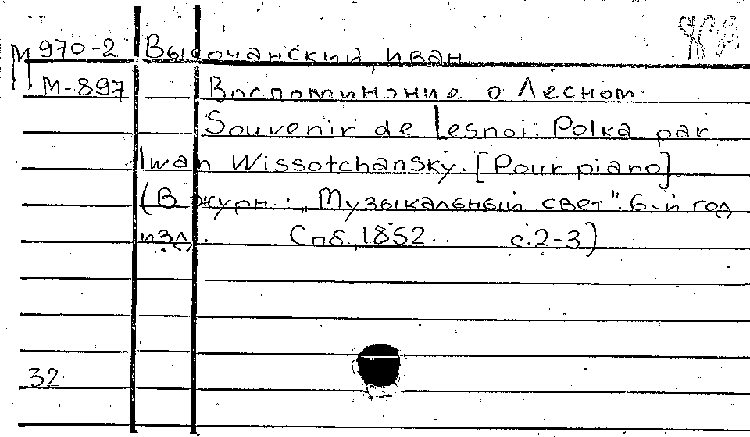 М 970-2 Высочанский, Иван
М-897 Воспоминание о Лесном.
Souvenir de Lesnoi. Polka par
Iwan Wissotchansky. [Pour piano]
(В журн.: „Музыкальный свет". 6-й год
изд. Спб. 1852 с. 2-3)
32